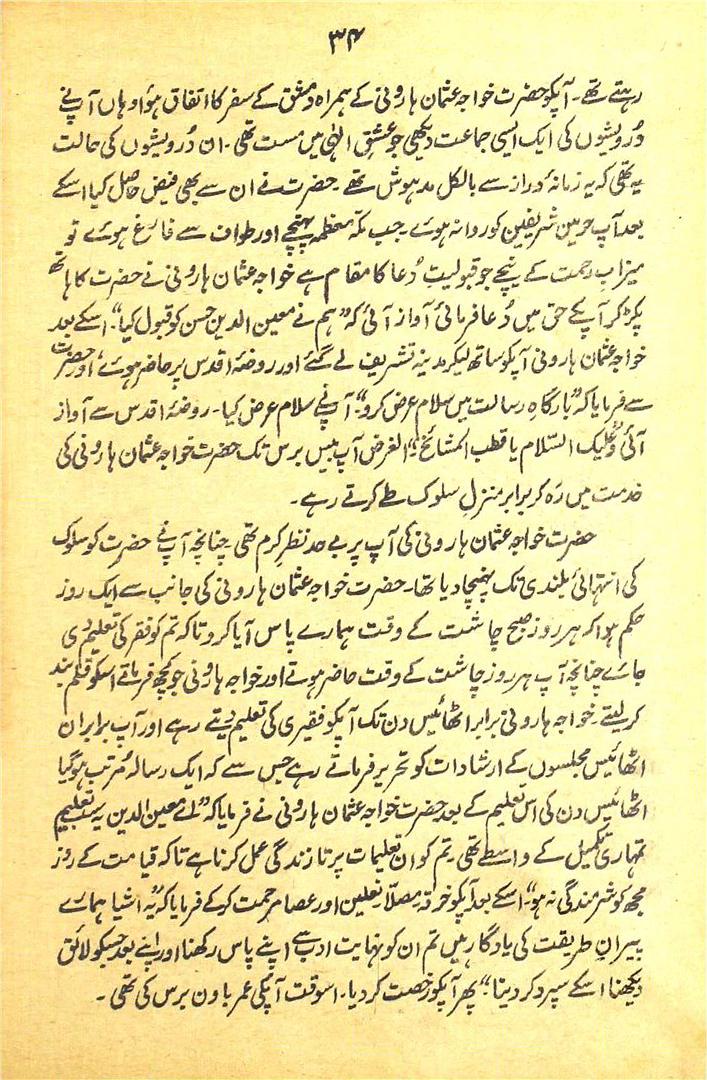 ۳۴
رہتے تھے۔ آپکو حضرت خواجہ عثمان ہارونی کے ہمراہ دمشق کے سفر کا اتفاق ہوا وہاں آپنے
درویشوں کی ایک ایسی جماعت دیکھی جو عشقِ الٰہی میں مست تھی۔ ان درویشوں کی حالت
یہ تھی کہ یہ زمانۂ دراز سے بالکل مدہوش تھے۔ حضرت نے ان سے بھی فیض حاصل کیا اسکے
بعد آپ حرمین شریفین کو روانہ ہوئے۔ جب مکہ معظمہ پہنچے اور طواف سے فارغ ہوئے تو
میزابِ رحمت کے نیچے جو قبولیت دُعا کا مقام ہے خواجہ عثمان ہارونی نے حضرت کا ہاتھ
پکڑ کر آپکے حق میں دُعا فرمائی آواز آئی کہ "ہم نے معین الدین حسن کو قبول کیا"۔ اسکے بعد
خواجہ عثمان ہارونی آپکو ساتھ لیکر مدینہ تشریف لے گئے اور روضۂ اقدس پر حاضر ہوئے، اور حضرت
سے فرمایا کہ "بارگاہِ رسالت میں سلام عرض کرو"۔ آپنے سلام عرض کیا۔ روضۂ اقدس سے آواز
آئی "وعلیک السّلام یا قطب المشائخ"۔ الغرض آپ بیس برس تک حضرت خواجہ عثمان ہارونی کی
خدمت میں رَہ کر برابر منزلِ سلوک طے کرتے رہے۔
حضرت خواجہ عثمان ہارونی کی آپ پر بے حد نظرِ کرم تھی چنانچہ آپنے حضرت کو سلوک
کی انتہائی بلندی تک پہنچا دیا تھا۔ حضرت خواجہ عثمان ہارونی کی جانب سے ایک روز
حکم ہوا کہ ہر روز صبح چاشت کے وقت ہمارے پاس آیا کرو تاکہ تم کو فقر کی تعلیم دی
جائے چنانچہ آپ ہر روز چاشت کے وقت حاضر ہوتے اور خواجہ ہارونی جو کچھ فرماتے اسکو قلم بند
کر لیتے۔ خواجہ ہارونی برابر اٹھائیس دن تک آپکو فقیری کی تعلیم دیتے رہے اور آپ برابر ان
اٹھائیس مجلسوں کے ارشادات کو تحریر فرماتے رہے جس سے کہ ایک رسالہ مُرتب ہو گیا
اٹھائیس دن کی اس تعلیم کے بعد حضرت خواجہ عثمان ہارونی نے فرمایا کہ "اے معین الدین یہ سب تعلیم
تمہاری تکمیل کے واسطے تھی۔ تم کو ان تعلیمات پر تا زندگی عمل کرنا ہے تاکہ قیامت کے روز
مجھ کو شرمندگی نہ ہو"۔ اسکے بعد آپکو خرقہ مصلّا نعلین اور عصا مرحمت کر کے فرمایا کہ "یہ اشیا ہمارے
پیرانِ طریقت کی یادگار ہیں تم ان کو نہایت ادب سے اپنے پاس رکھنا اور اپنے بعد جسکو لائق
دیکھنا اسکے سپرد کر دینا"۔ پھر آپکو رخصت کر دیا۔ اسوقت آپکی عمر باون برس کی تھی۔